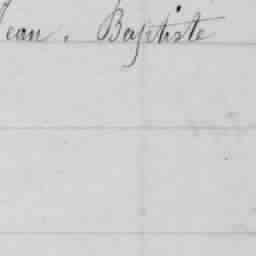 Jean. Baptiste